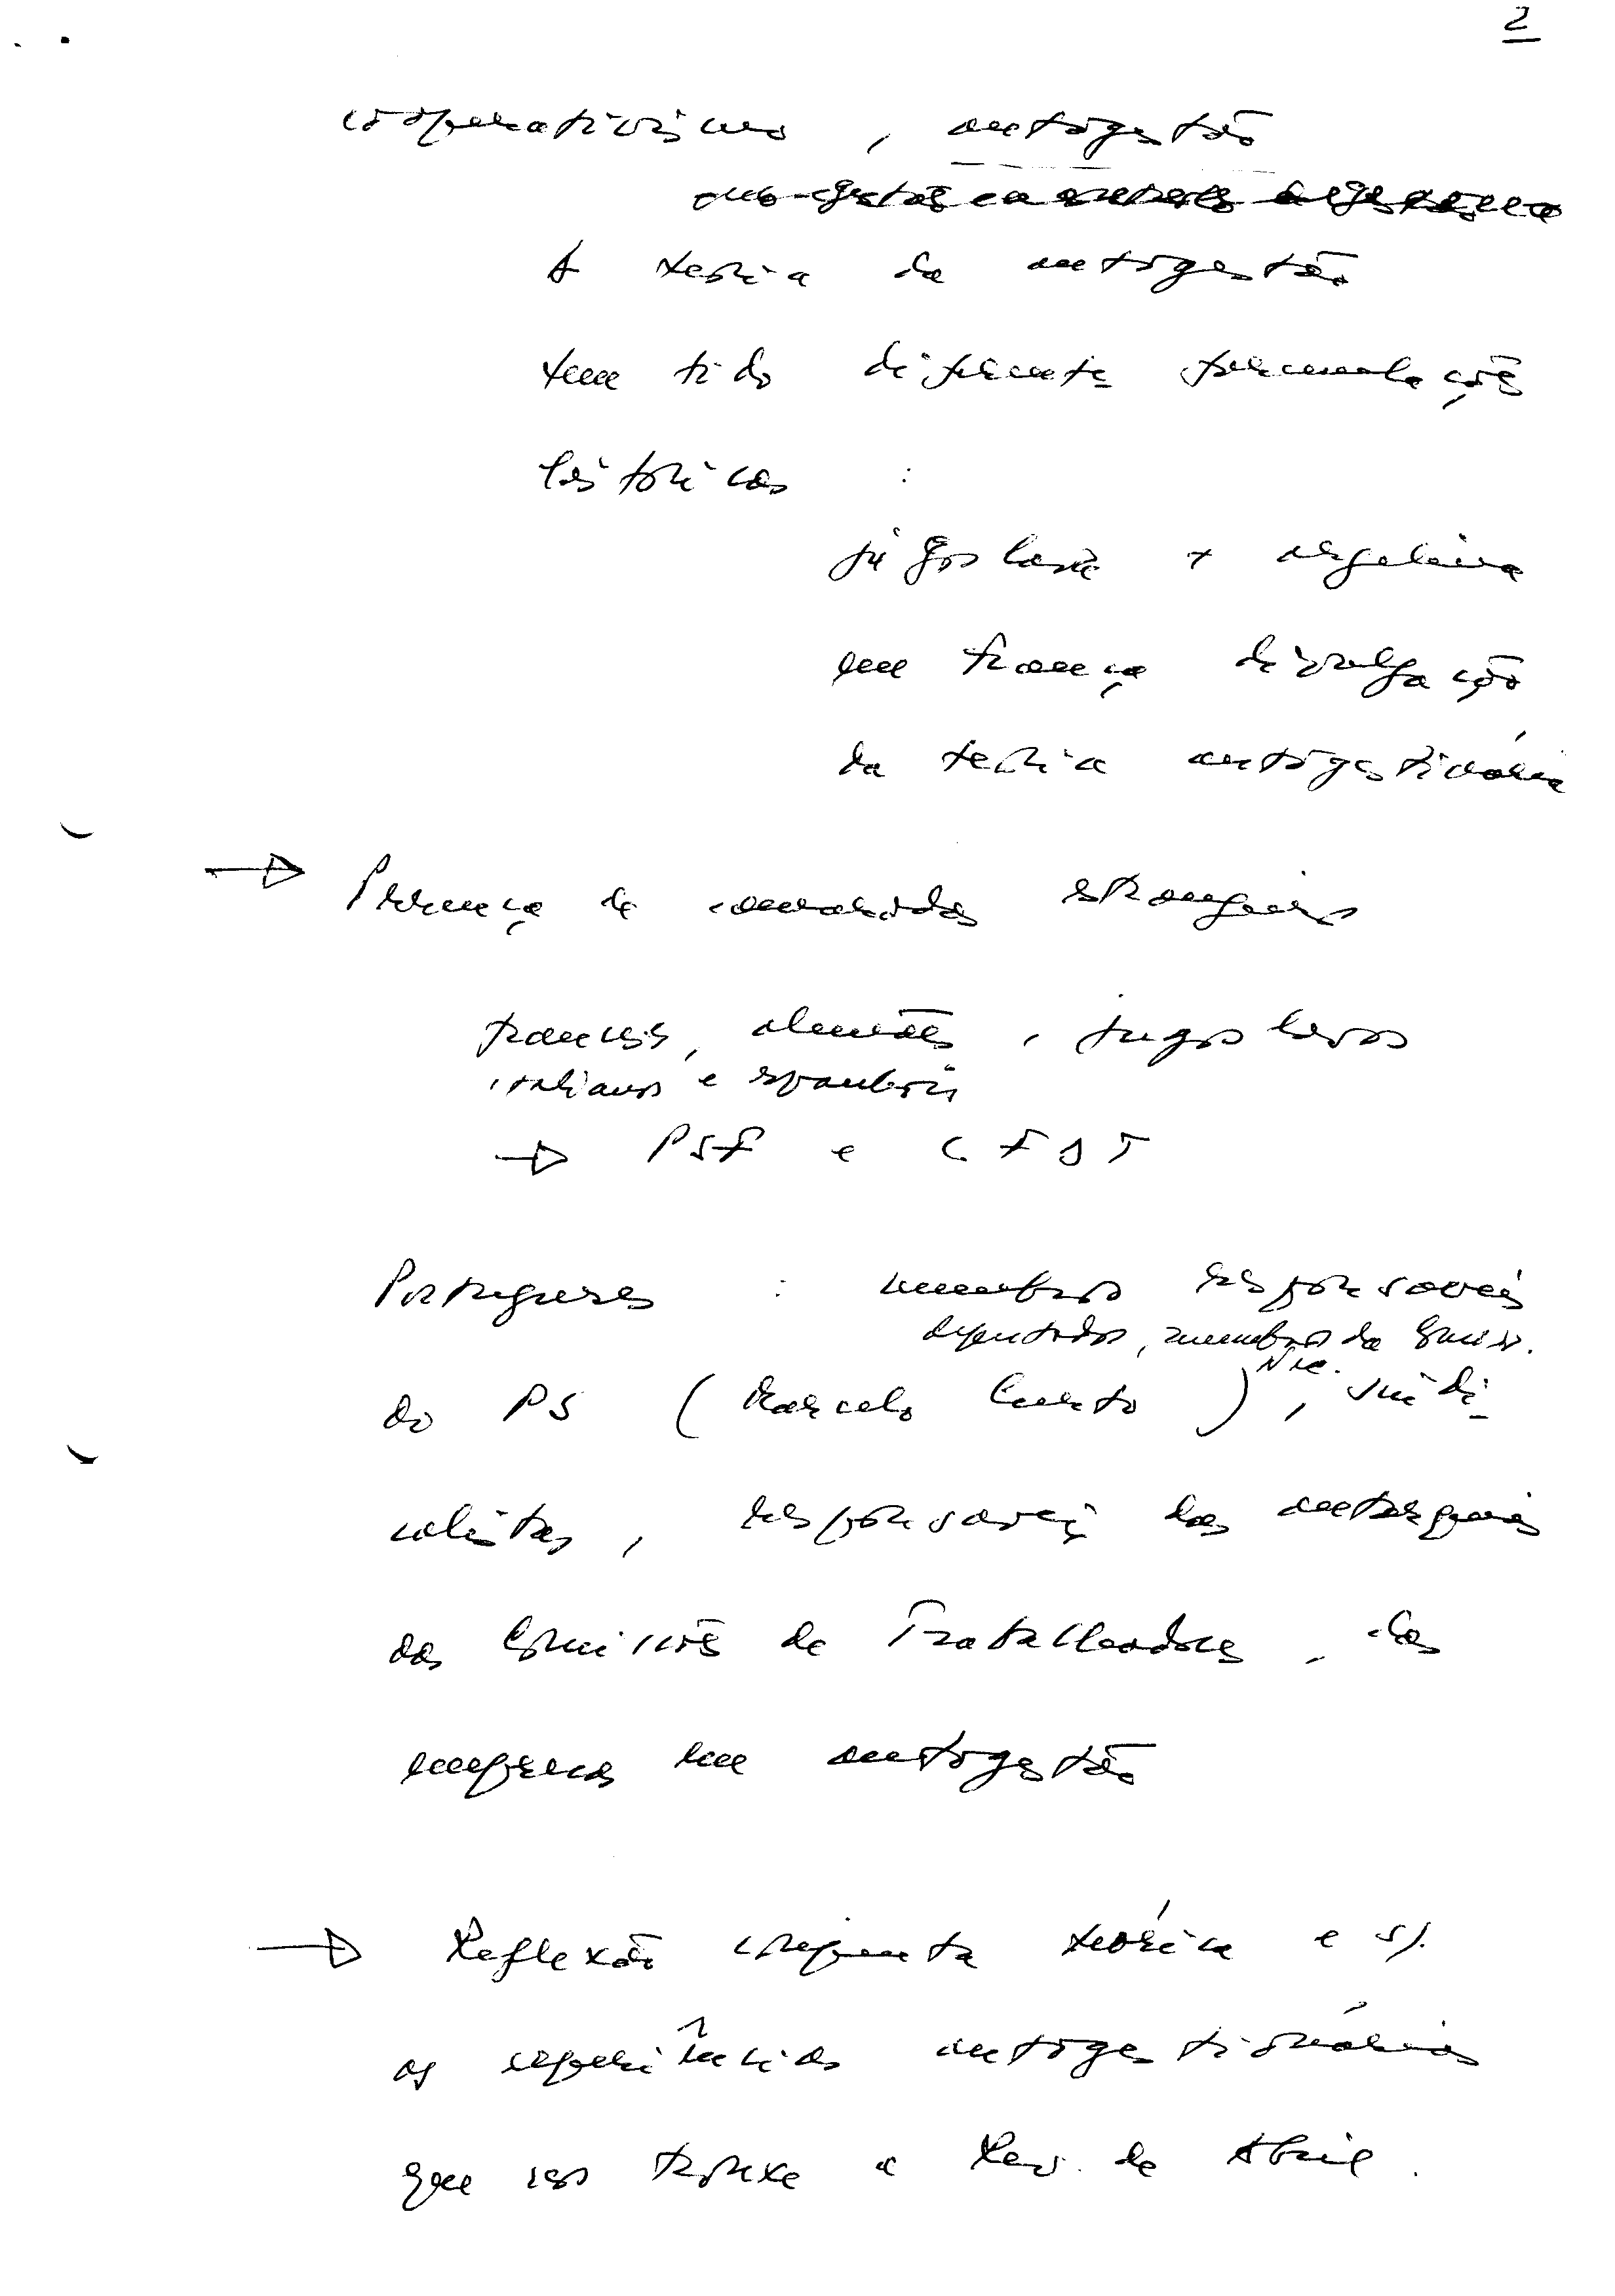 2
cooperativismo, autogestão
A teoria da autogestão
tem tido diferentes formulações
históricas :
jugoslava + argelina
em França divulgação
da teoria autogestionária
→ Presença de camaradas estrangeiros
franceses, alemães, jugoslavos
italianos e espanhóis
→ PSF e CFDT
Portugueses : membros responsáveis
deputados, membros da Comis.
Nac.
do PS (Marcelo Curto), sindi-
calistas, responsáveis das autarquias
das Comissões de Trabalhadores, das
empresas em autogestão
→ Reflexão conjunta teórica e s/.
as experiências autogestionárias
que nos trouxe a Rev. de Abril.